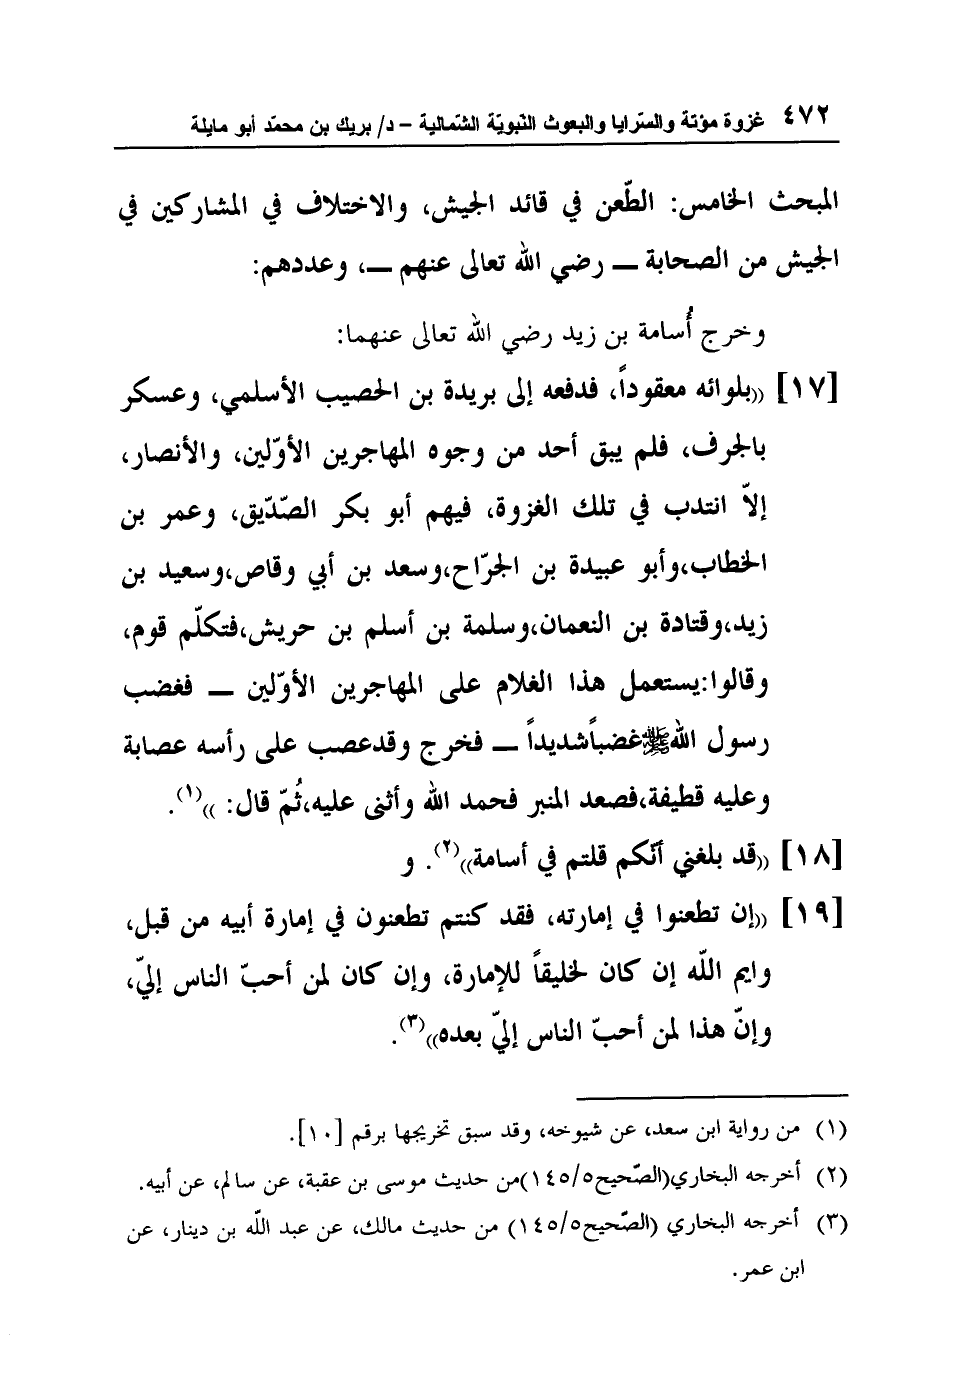 ٤٧٢ غزوة مؤتة والسّرايا والبعوث النّبويّة الشّمالية – د/ بريك بن محمّد أبو مايلة
المبحث الخامس: الطّعن في قائد الجيش، والاختلاف في المشاركين في
الجيش من الصحابة ــ رضي الله تعالى عنهم ــ، وعددهم:
وخرج أُسامة بن زيد رضي الله تعالى عنهما:
[١٧] ((بلوائه معقوداً، فدفعه إلى بريدة بن الحصيب الأسلمي، وعسكر
بالجرف، فلم يبق أحد من وجوه المهاجرين الأوّلين، والأنصار،
إلاّ انتدب في تلك الغزوة، فيهم أبو بكر الصّدّيق، وعمر بن
الخطاب،وأبو عبيدة بن الجرّاح،وسعد بن أبي وقاص،وسعيد بن
زيد،وقتادة بن النعمان،وسلمة بن أسلم بن حريش،فتكلّم قوم،
وقالوا:يستعمل هذا الغلام على المهاجرين الأوّلين ــ فغضب
رسول الله ﷺ غضباًشديداً ــ فخرج وقدعصب على رأسه عصابة
وعليه قطيفة،فصعد المنبر فحمد الله وأثنى عليه،ثُمّ قال: ))(١).
[١٨] ((قد بلغني أنّكم قلتم في أسامة))(٢). و
[١٩] ((إن تطعنوا في إمارته، فقد كنتم تطعنون في إمارة أبيه من قبل،
وايم اللّه إن كان لخليقاً للإمارة، وإن كان لمن أحبّ الناس إليّ،
وإنّ هذا لمن أحبّ الناس إليّ بعده))(٣).
(١) من رواية ابن سعد، عن شيوخه، وقد سبق تخريجها برقم [١٠].
(٢) أخرجه البخاري(الصّحيح١٤٥/٥)من حديث موسى بن عقبة، عن سالم، عن أبيه.
(٣) أخرجه البخاري (الصّحيح١٤٥/٥) من حديث مالك، عن عبد اللّه بن دينار، عن
ابن عمر.